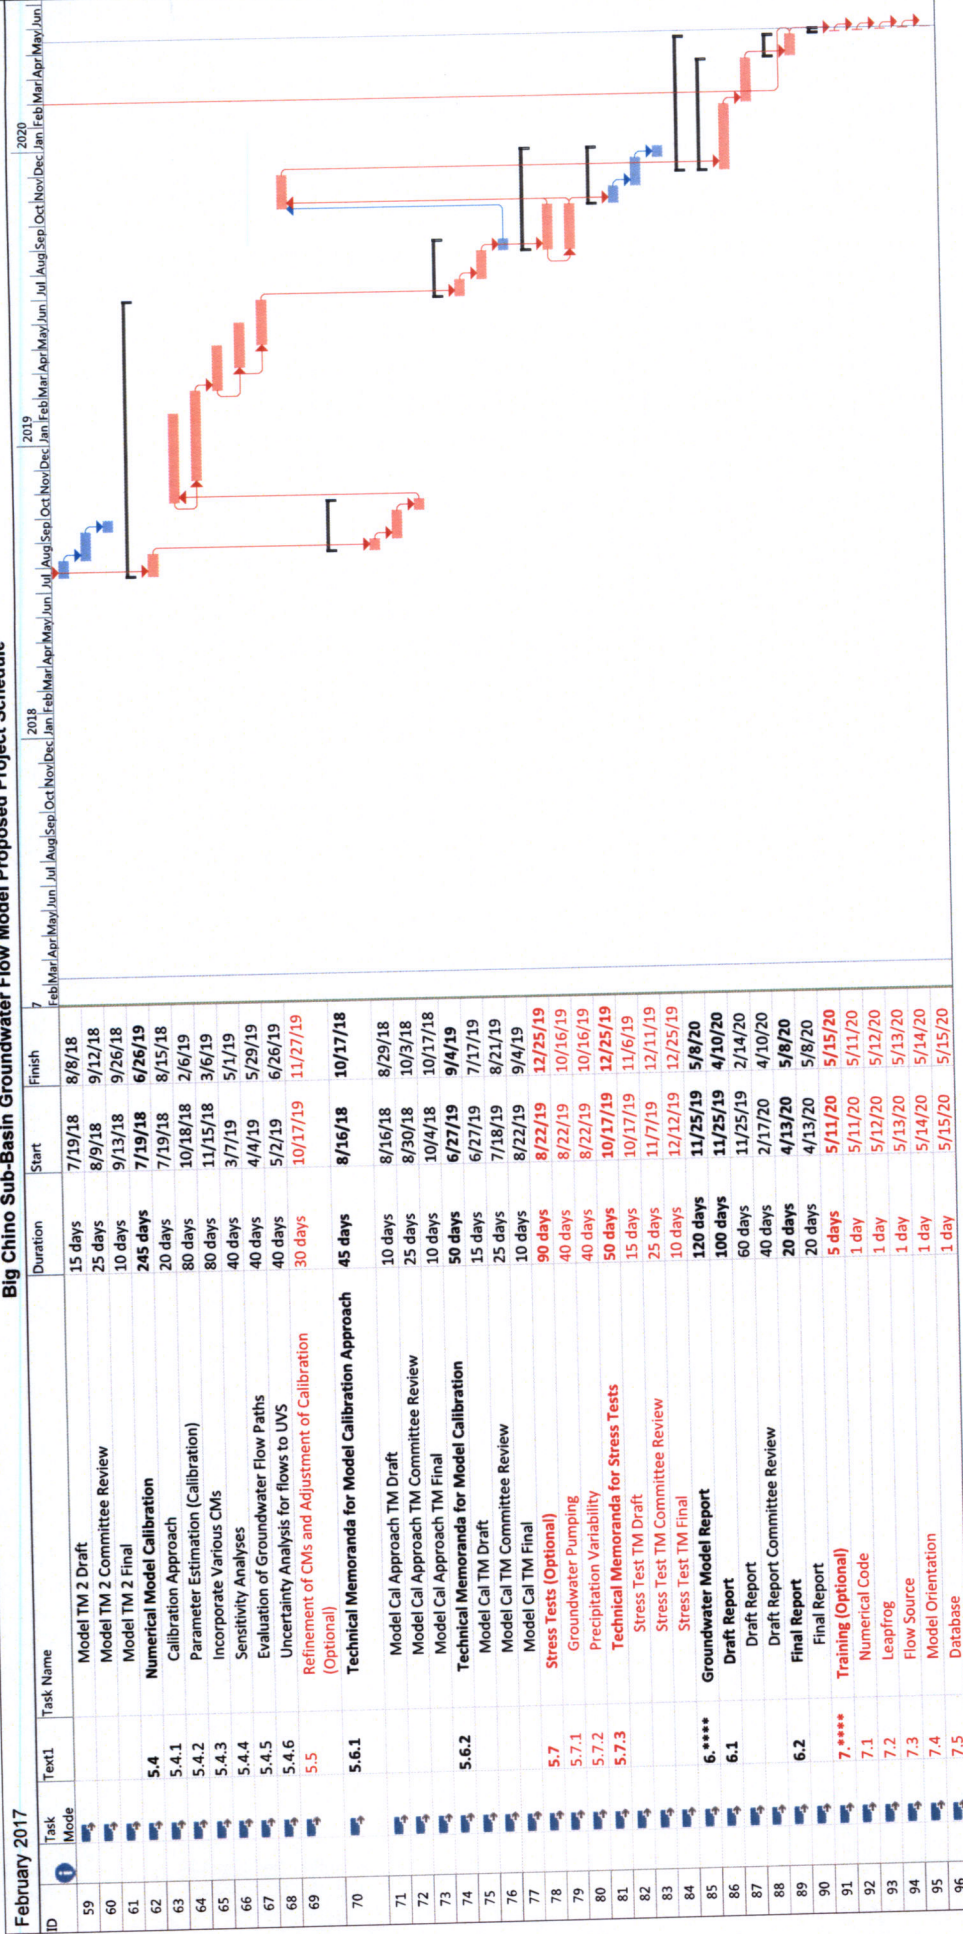 Big Chino Sub-Basin Groundwater Flow Model Proposed Project Schedule
February 2017
ID Task Mode Text1 Task Name Duration Start Finish
7 2018 2019 2020
Feb Mar Apr May Jun Jul Aug Sep Oct Nov Dec Jan Feb Mar Apr May Jun Jul Aug Sep Oct Nov Dec Jan Feb Mar Apr May Jun Jul Aug Sep Oct Nov Dec Jan Feb Mar Apr May Jun
59 Model TM 2 Draft 15 days 7/19/18 8/8/18
60 Model TM 2 Committee Review 25 days 8/9/18 9/12/18
61 Model TM 2 Final 10 days 9/13/18 9/26/18
62 5.4 Numerical Model Calibration 245 days 7/19/18 6/26/19
63 5.4.1 Calibration Approach 20 days 7/19/18 8/15/18
64 5.4.2 Parameter Estimation (Calibration) 80 days 10/18/18 2/6/19
65 5.4.3 Incorporate Various CMs 80 days 11/15/18 3/6/19
66 5.4.4 Sensitivity Analyses 40 days 3/7/19 5/1/19
67 5.4.5 Evaluation of Groundwater Flow Paths 40 days 4/4/19 5/29/19
68 5.4.6 Uncertainty Analysis for flows to UVS 40 days 5/2/19 6/26/19
69 5.5 Refinement of CMs and Adjustment of Calibration (Optional) 30 days 10/17/19 11/27/19
70 5.6.1 Technical Memoranda for Model Calibration Approach 45 days 8/16/18 10/17/18
71 Model Cal Approach TM Draft 10 days 8/16/18 8/29/18
72 Model Cal Approach TM Committee Review 25 days 8/30/18 10/3/18
73 Model Cal Approach TM Final 10 days 10/4/18 10/17/18
74 5.6.2 Technical Memoranda for Model Calibration 50 days 6/27/19 9/4/19
75 Model Cal TM Draft 15 days 6/27/19 7/17/19
76 Model Cal TM Committee Review 25 days 7/18/19 8/21/19
77 Model Cal TM Final 10 days 8/22/19 9/4/19
78 5.7 Stress Tests (Optional) 90 days 8/22/19 12/25/19
79 5.7.1 Groundwater Pumping 40 days 8/22/19 10/16/19
80 5.7.2 Precipitation Variability 40 days 8/22/19 10/16/19
81 5.7.3 Technical Memoranda for Stress Tests 50 days 10/17/19 12/25/19
82 Stress Test TM Draft 15 days 10/17/19 11/6/19
83 Stress Test TM Committee Review 25 days 11/7/19 12/11/19
84 Stress Test TM Final 10 days 12/12/19 12/25/19
85 6.**** Groundwater Model Report 120 days 11/25/19 5/8/20
86 6.1 Draft Report 100 days 11/25/19 4/10/20
87 Draft Report 60 days 11/25/19 2/14/20
88 Draft Report Committee Review 40 days 2/17/20 4/10/20
89 6.2 Final Report 20 days 4/13/20 5/8/20
90 Final Report 20 days 4/13/20 5/8/20
91 7.**** Training (Optional) 5 days 5/11/20 5/15/20
92 7.1 Numerical Code 1 day 5/11/20 5/11/20
93 7.2 Leapfrog 1 day 5/12/20 5/12/20
94 7.3 Flow Source 1 day 5/13/20 5/13/20
95 7.4 Model Orientation 1 day 5/14/20 5/14/20
96 7.5 Database 1 day 5/15/20 5/15/20